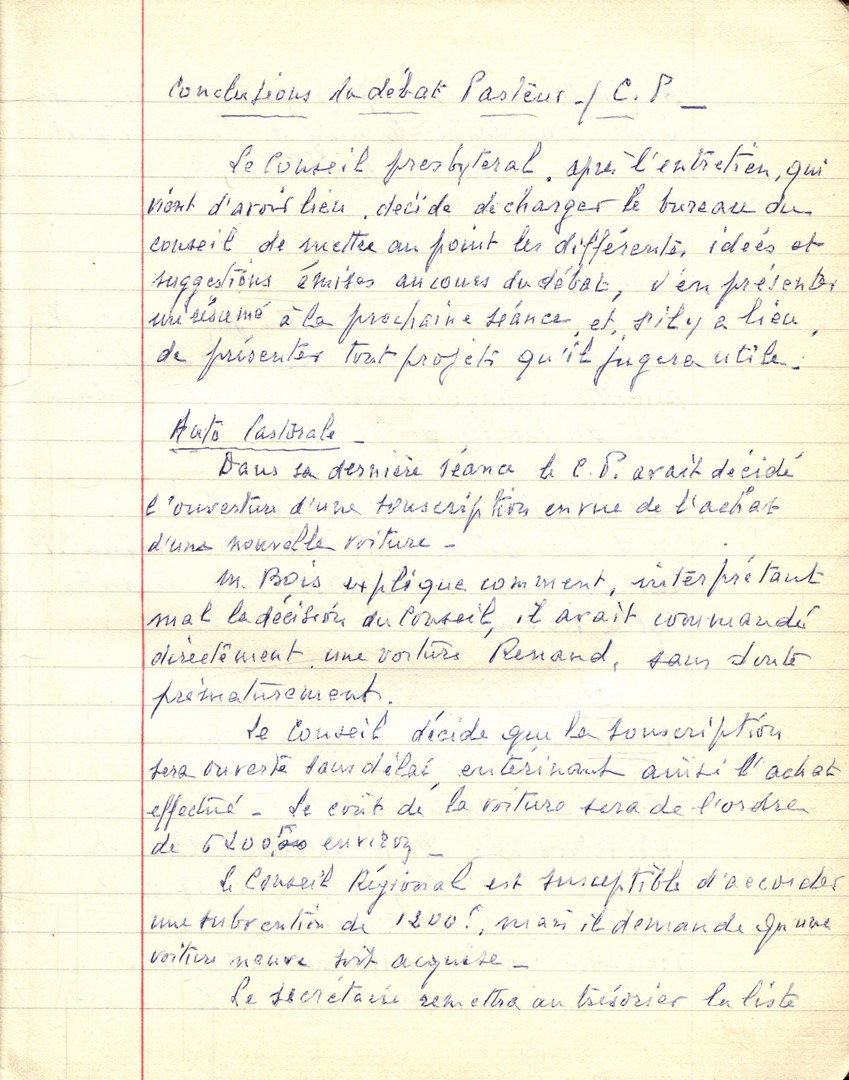 Conclusions du débat Pasteur - / C. P. _
Le Conseil presbytéral, après l'entretien, qui
vient d'avoir lieu, décide de charger le bureau du
conseil de mettre au point les différentes idées et
suggestions émises au cours du débat, d'en présenter
un résumé à la prochaine séance, et, s'il y a lieu,
de présenter tout projets qu'il jugera utile.
Auto Pastorale _
Dans sa dernière séance le C. P. avait décidé
l'ouverture d'une souscription en vue de l'achat
d'une nouvelle voiture -
M. Bois explique comment, interprétant
mal la décision du Conseil, il avait commandé
directement, une voiture Renaud, sans doute
prématurément.
Le Conseil décide que la souscription
sera ouverte sans délai, entérinant ainsi l'achat
effectué - Le coût de la voiture sera de l'ordre
de environ _
Le Conseil Régional est susceptible d'accorder
une subvention de 1200f, mais il demande qu'une
voiture neuve soit acquise -
Le secrétaire remettra au trésorier la liste